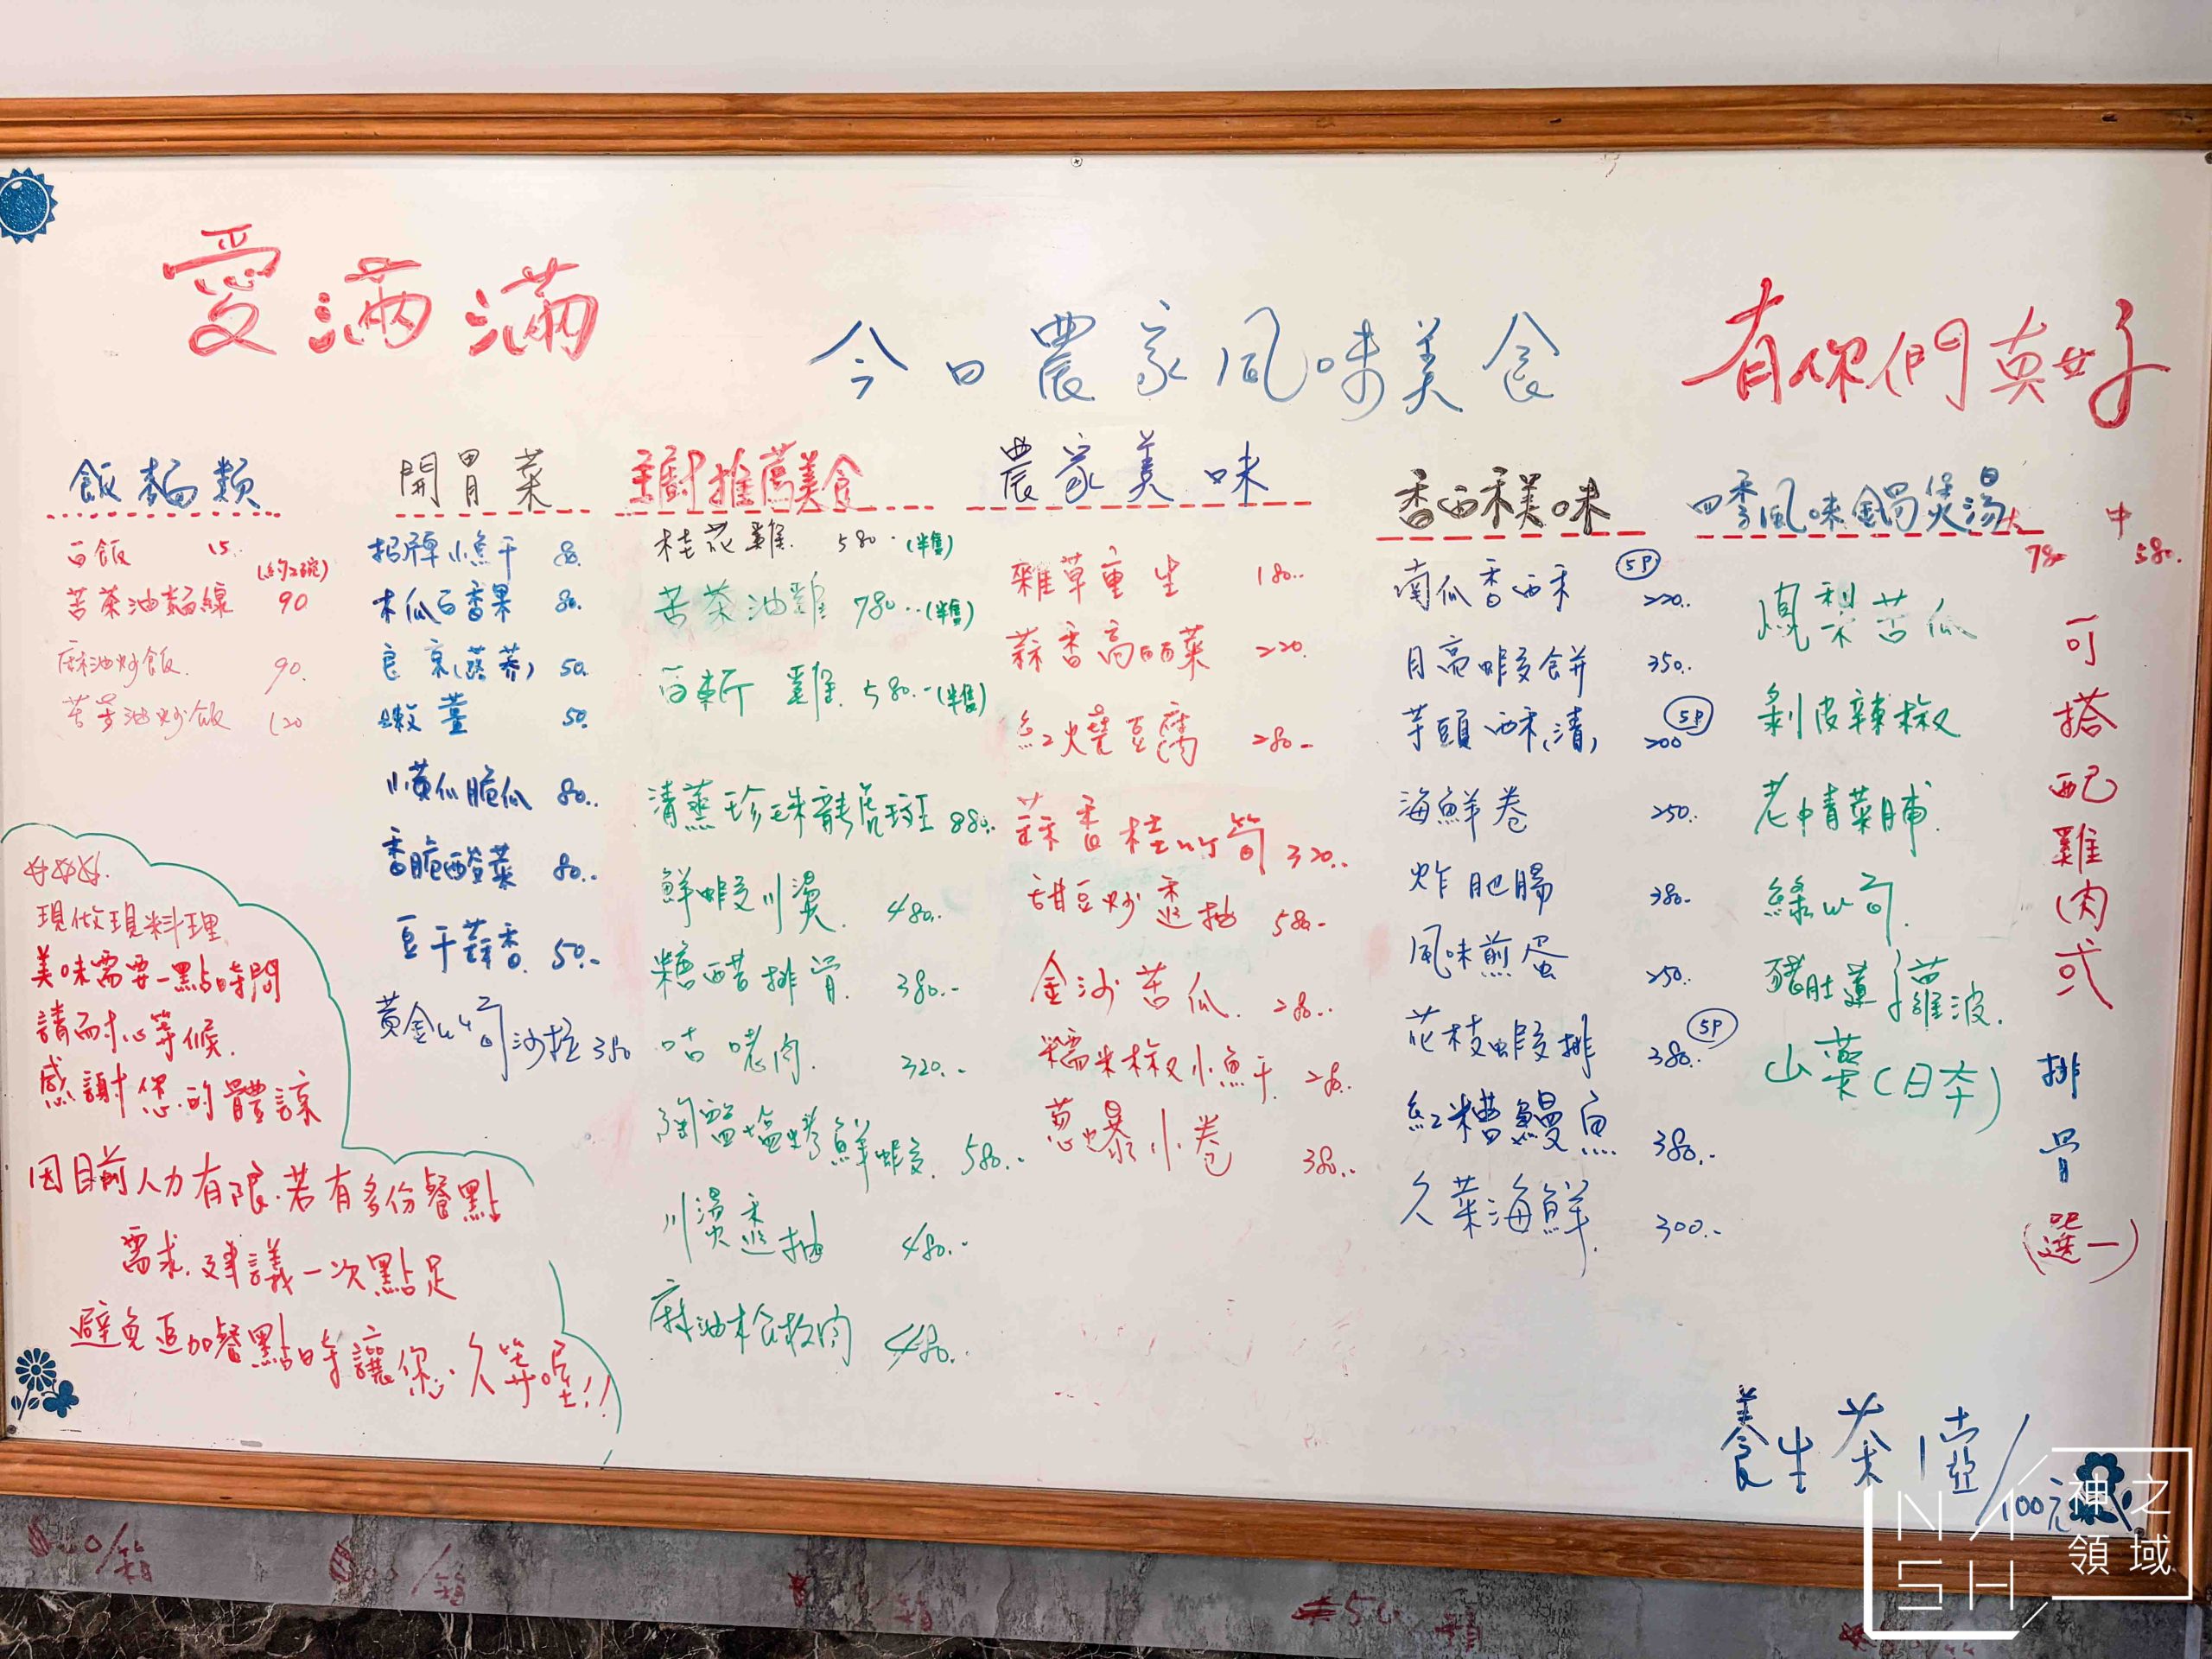 愛滿滿
今日農家風味美食
有你們真好
飯麵類
白飯 15.. (約2碗)
苦茶油麵線 90
麻油炒飯 90.
苦茶油炒飯 120
開胃菜
招牌小魚干 80.
木瓜百香果 80.
皀衷(蕗蕎) 50.
嫩薑 50.
小黃瓜脆瓜 80..
香脆酸菜 80..
豆干蒜香 50.-
黃金竹筍沙拉 350
主廚推薦美食
桂花雞 580.-(半隻)
苦茶油雞 780..(半隻)
白斬雞 580.-(半隻)
清蒸珍珠龍虎斑 880..
鮮蝦川燙 480..
糖醋排骨 380.-
咕咾肉 320.-
陶甕塩烤鮮蝦 580..
川燙透抽 480.-
麻油松板肉 480..
農家美味
雜草重生 180..
蒜香高麗菜 220.
紅燒豆腐 280.-
蒜香桂竹筍 320..
甜豆炒透抽 580.-
金沙苦瓜 280..
糯米椒小魚干 280.
蔥爆小卷 380..
香酥美味
南瓜香酥 5P 220..
月亮蝦餅 350..
芋頭酥(清) 5P 200
海鮮卷 250..
炸肥腸 380.-
風味煎蛋 250.
花枝蝦排 5P 380..
紅糟鰻魚 380.-
久菜海鮮 300.-
四季風味鍋煲湯 大 780 中 580.
鳳梨苦瓜
剝皮辣椒
老情菜脯
綠竹筍
豬肚蓮
蘿波
山藥(日本)
可搭配雞肉或排骨(選一)
現做現料理
美味需要一點時間
請耐心等候.
感謝您的體諒
因目前人力有限.若有多份餐點
需求.建議一次點足
避免追加餐點時讓您久等喔!!
養生茶1壺/100元
NASH
神之領域